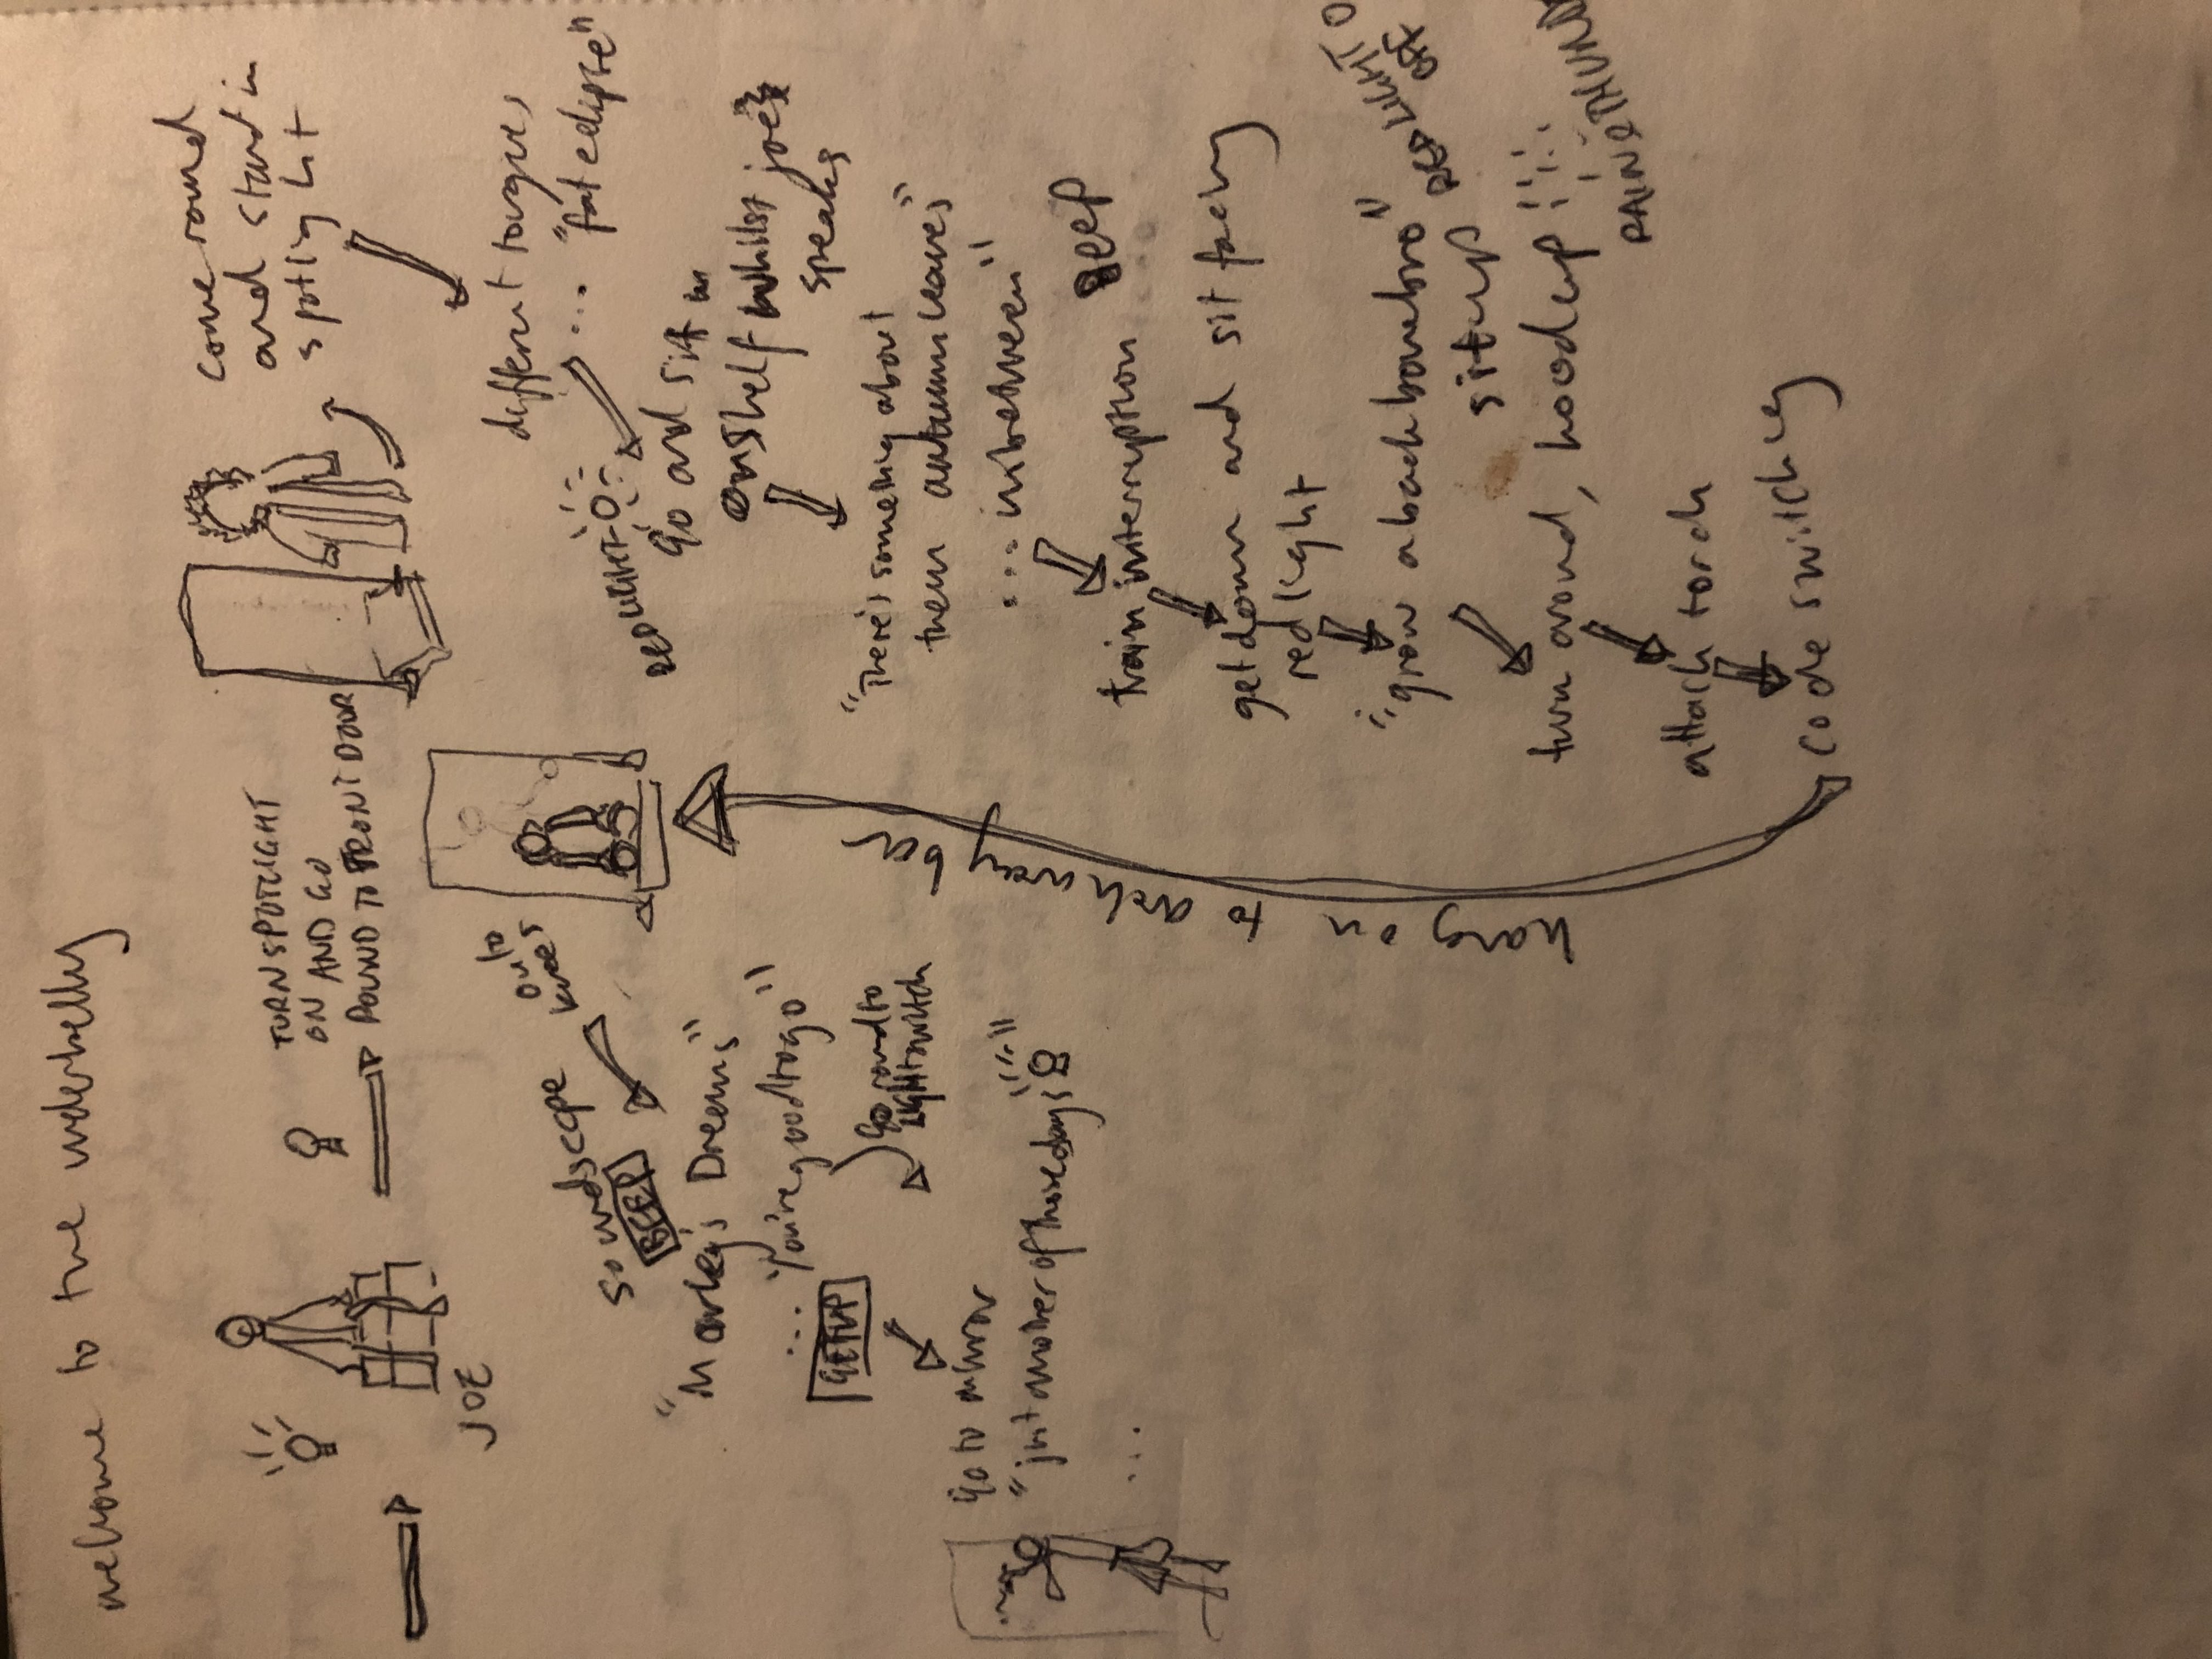 welcome to the underbelly
JOE
TURN SPOTLIGHT
ON AND GO
ROUND TO FRONT DOOR
come round
and stand in
spotlight
different tongues
... "fat
RED LIGHT
go and sit
on shelf whilst joe
speaks
"There's something about
them autumn leaves"
... inbetween"
train interruption BEEP
get down and sit facing
red light
"grow a backbone bro"
sit up
RED LIGHT
OFF
turn around, hood up
RAIN & THUND
attach torch
code switch
hang on to archway bar
onto
knees
soundscape
BEEP
"Marley's Dreams"
... "you're good to go"
GET UP
go round to
light switch
go to mirror
"just another of those days"
...